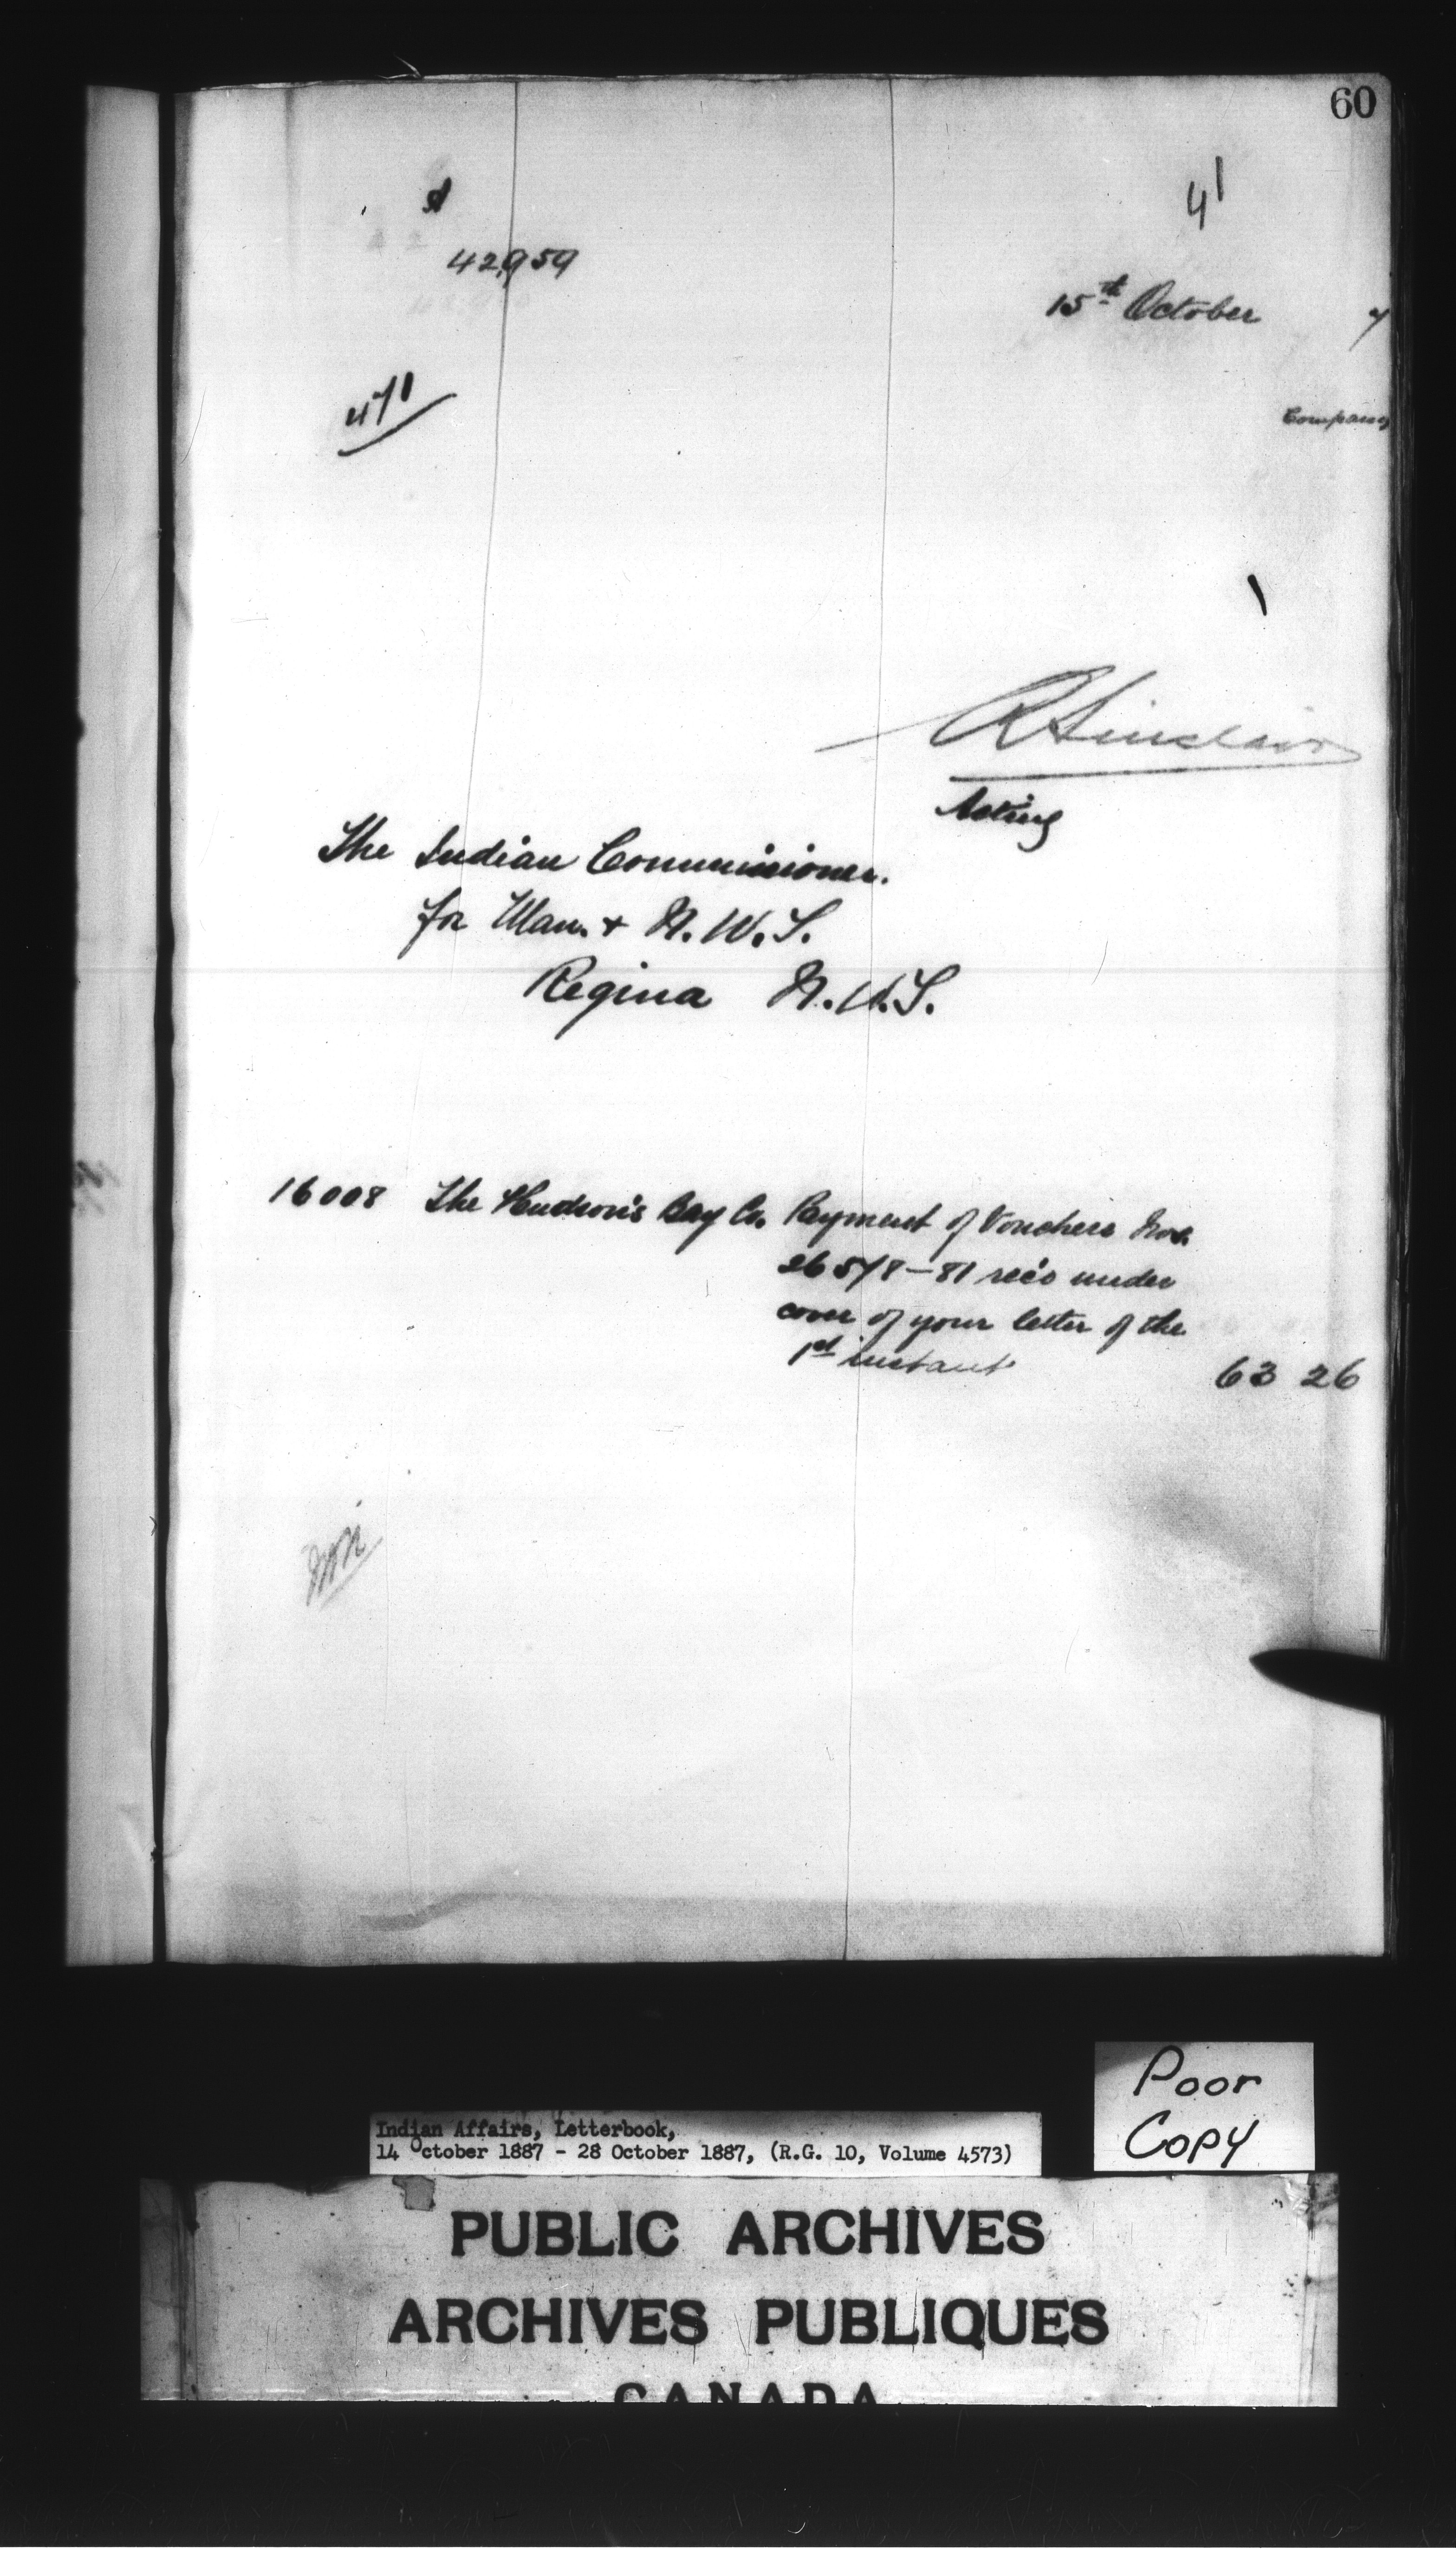 60
41
42,959
15th October 7
471
Company
R Sinclair
Acting
The Indian Commissioner.
for Man. + N. W. T.
Regina N. W. T.
16008 The Hudson's Bay Co. Payment of Vouchers Nos.
26578-81 rec'd under
cover of your letter of the
1st instant
63 26
Poor
Copy
Indian Affairs, Letterbook,
14 October 1887 - 28 October 1887, (R.G. 10, Volume 4573)
PUBLIC ARCHIVES
ARCHIVES PUBLIQUES
CANADA